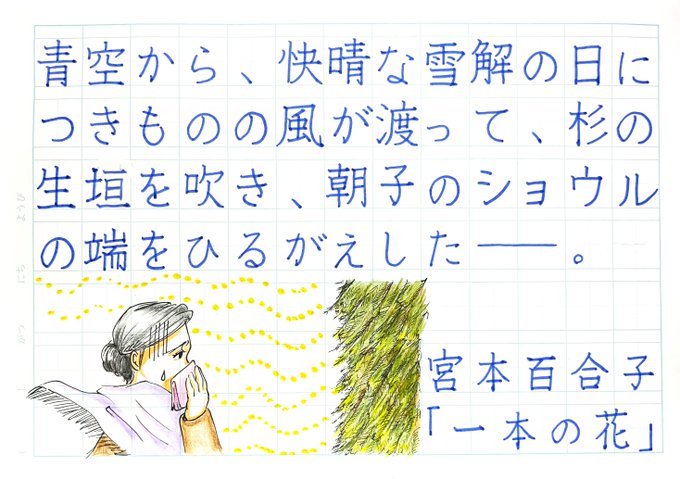 青空から、快晴な雪解の日に
つきものの風が渡って、杉の
生垣を吹き、朝子のショウル
の端をひるがえした――。
宮本百合子
「一本の花」